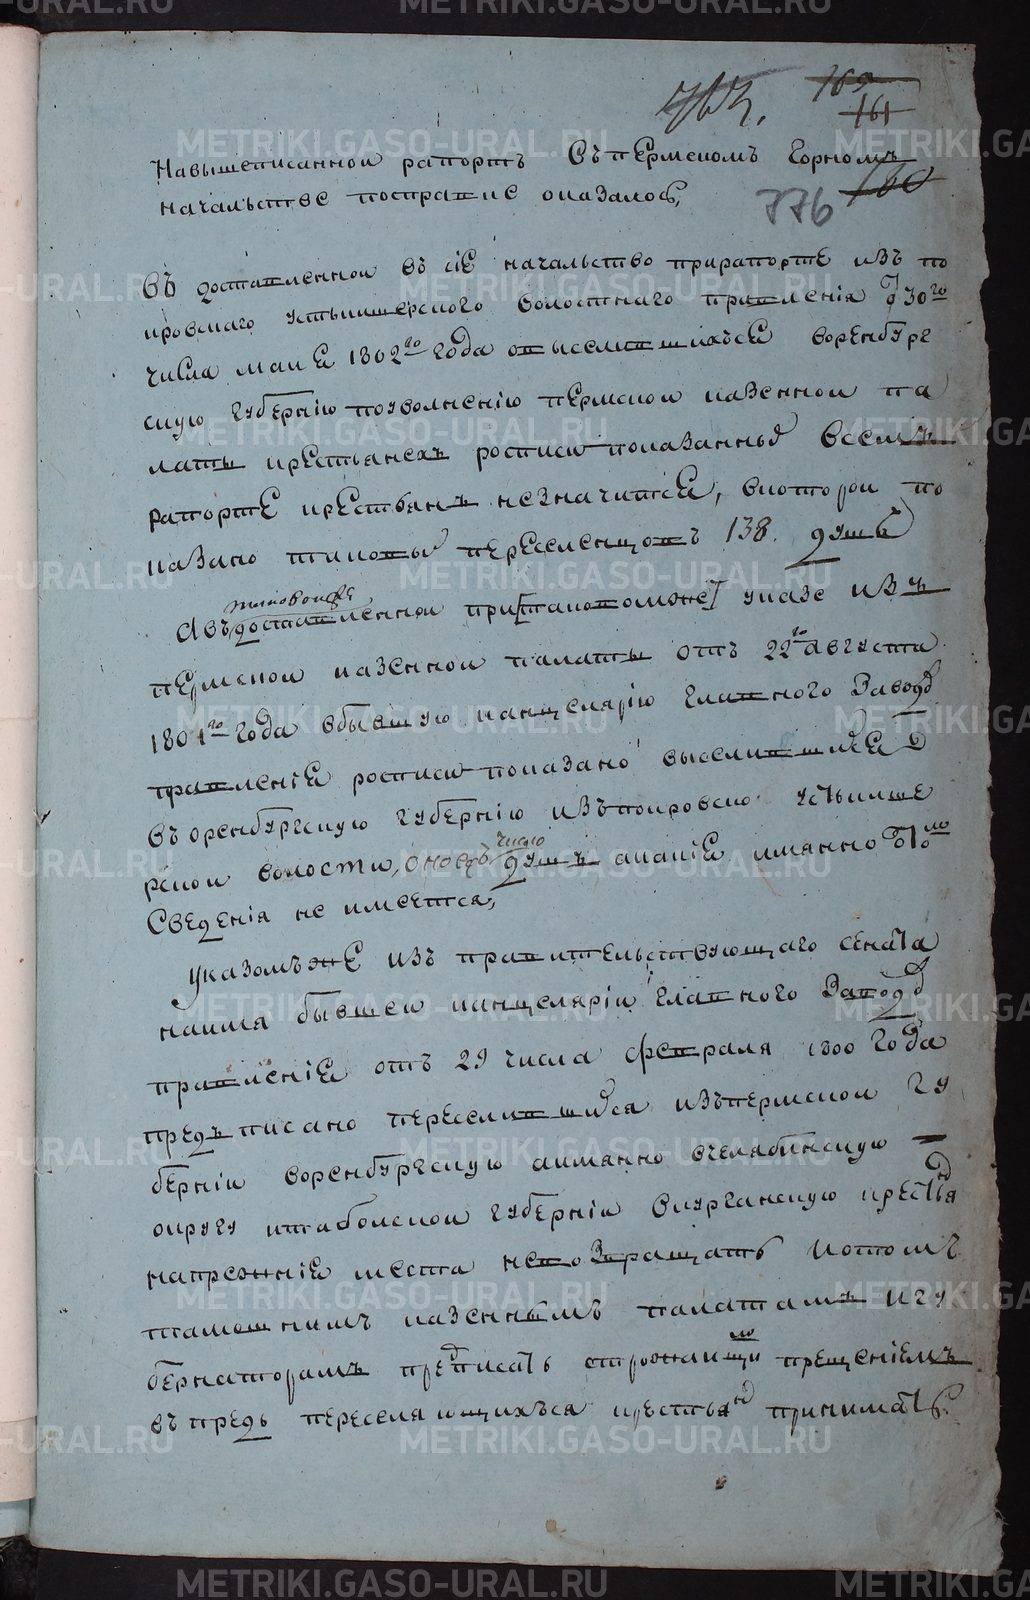 765.
165
161
160
776
Навышеписанной рапортъ Въ пермскомъ Горномъ
начальстве поспрапке оказалось,
Въ доставленной въ сіе начальство прирапорте изъ по
кровскаго устьницерского волостнаго правленія 30го
числа маия 1802го года о выселившихъся воренбург
скую губернію поуволненію пермской казенной па
латы крестьянехъ росписи показанныя всемъ
рапорте крестьянъ незначитсе, вкоторой по
казано таковыя переселенцовъ 138. душъ
таковойже
А въ доставленной при томже указе изъ
пермской казенной палаты отъ 22го августа
1801го года вбывшую канцелярію главного заводовъ
правленія росписи показано выселившиеся
въ оренбургскую губернію изъ покровско устьнице
рской волости, оноехъ число душъ акакіе имянно того
Сведения не имеется,
Указомъ же изъ правительствующаго сената
наимя бывшей канцеляріи главного заводовъ
правленіе отъ 29 числа февраля 1800 года
предъписано переселившихся изъ пермской гу
берніи воренбургскую аимянно вчелябинскую
округу итабольской губерніи вкурганскую крестьянъ
напрежніе места невозвращать и о томъ
тамошнимъ казеннымъ палатамъ и гу
бернаторамъ предписать строжайшимъ прещеніемъ
въ предь переселяющихъся крестьянъ принимать.
METRIKI.GASO-URAL.RU